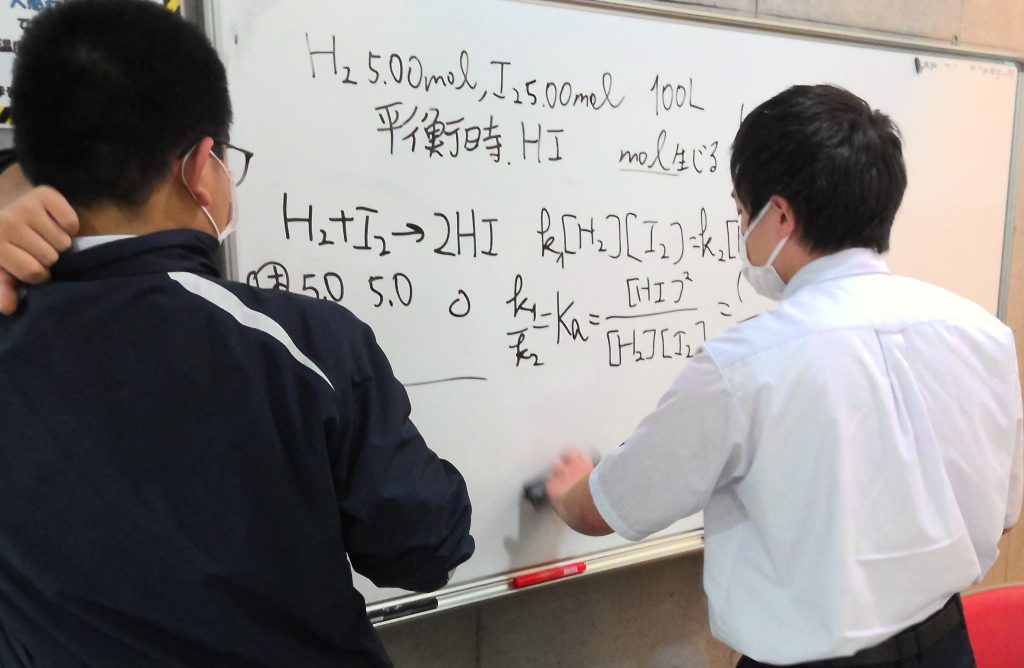 H₂ 5.00mol, I₂5.00mol 100L
平衡時. HI mol生じる
H₂+I₂→2HI k₁[H₂][I₂]=k₂[
前 5.0 5.0 0
k₁/k₂=Ka=[HI]²/[H₂][I₂]=(